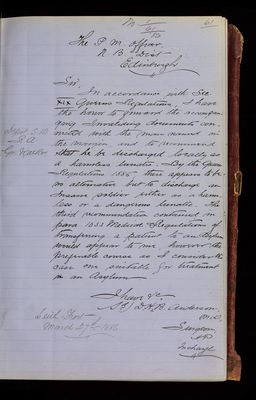 M 1/61/B
61
The P. M. Officer
N. B. Dist
Edinburgh
Sir,
In accordance with Sec
XIX Queens Regulations, I have
the honor to forward the accompan
ying Invaliding Documents con
nected with the man named in
the margin and to recommend
that he be discharged locally as
a harmless lunatic. By the Queens
Regulations 1885 there appears to be
no alternative but to discharge an
Insane soldier either as a harm
less or a dangerous lunatic. The
third recommendation contained in
para 1053 Medical Regulations of
transferring a patient to an Asylum
would appear to me, however the
preferable course as I consider the
case one suitable for treatment
in an Asylum.
R.A.
I have &c
Anderson
M.B.
Surgeon
Incharge
Leith Fort
March 27th 1886